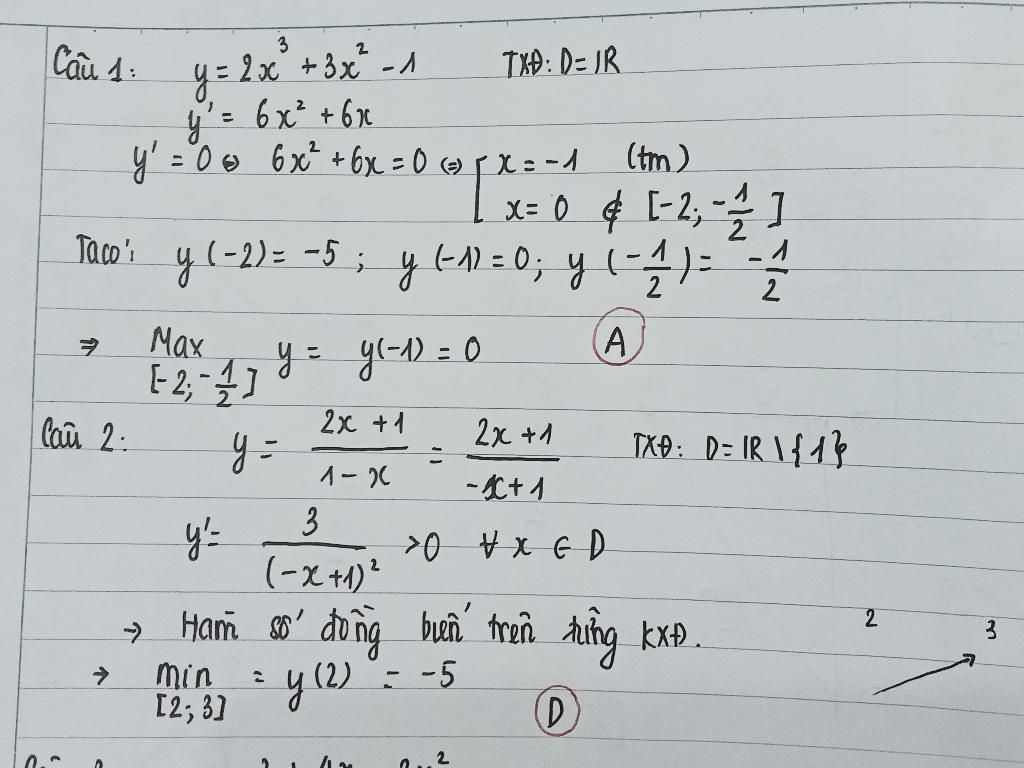 Câu 1: y = 2x³ + 3x² - 1 TXĐ: D = IR
y' = 6x² + 6x
y' = 0 ⇔ 6x² + 6x = 0 ⇔ [ x = -1 (tm)
x = 0 ∉ [-2; -1/2]
Ta có: y(-2) = -5; y(-1) = 0; y(-1/2) = -1/2
⇒ Max y = y(-1) = 0 A
[-2; -1/2]
Câu 2: y = (2x + 1)/(1 - x) = (2x + 1)/(-x + 1) TXĐ: D = IR \ {1}
y' = 3/(-x + 1)² > 0 ∀ x ∈ D
→ Hàm số đồng biến trên từng KXĐ.
2 3
→ min = y(2) = -5
[2; 3] D